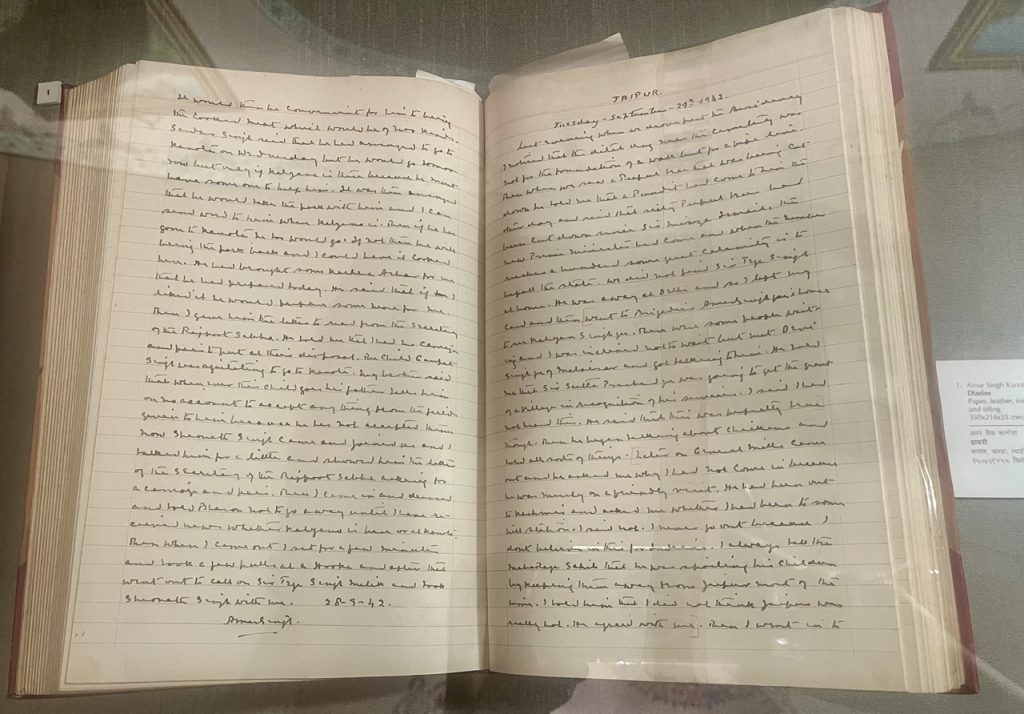 1
It would then be convenient for him to bring
the cooked meat which would be of two kinds.
Sardar Singh said that he had arranged to go to
Kanota on Wednesday but he would go tomor
row but only if Kalyana is there because he must
have some one to help him. It was then arranged
that he would take the pork with him and I can
send word to him where Kalyana is. Then if he has
gone to Kanota he too would go. If not then he will
bring the pork back and I could have it cooked
here. He had brought some Achar for me
that he had prepared today. He said that if I
liked it he would prepare some more for me.
Then I gave him the letter to read from the Secretary
of the Rajpoot Sabha. He told me that I had no carriage
and pair to put at their disposal. The child Ganpat
Singh was agitating to go to Kanota. My brother said
that when ever this child goes his father tells him
on no account to accept any thing from the
given to him because he has not accepted him
now Sheonath Singh came and joined us and I
talked him for a letter and showed him the letter
of the Secretary of the Rajpoot Sabha asking for
a carriage and pair. Then I came in and
and told Bheron not to go away until I have re-
ceived news whether Kalyana is here or at Kanota
Then when I came out I sat for a few minutes
and took a few pulls at a Hooka and after that
went out to call on Sir Teje Singh Malik and took
Sheonath Singh with me. 28-9-42.
Amar Singh.
JAIPUR.
Tuesday - September - 29th - 1942.
Last evening when we drove past the Residency
I noticed that the ditch dug near the Cemetery was
not for the foundation of a wall but for a pipe line.
Then when we saw a Peepul tree that was being cut
down he told me that a Pundit had come to him the
other day and said that sixty Peepul trees had
been cut down since Sir Mirza Ismail, the
new Prime Minister had come and when the number
reaches a hundred some great calamity is to
befall the state. We did not find Sir Teje Singh
at home. He was away at Delhi and so I left my
card and then went to Brigadier Amar Singh jee's house
to see Kalyan Singh jee. There were some people wait-
ing and I was inclined not to wait but met Devi
Singh jee of Malaisar and got talking to him. He told
me that Sir Sukh Prashad jee was going to get the grant
of a village in recognition of his services. I said I had
not heard this. He said that this was perfectly true
though. Then he began talking about children and
told all sorts of things. Later on General Mills came
out and he asked me why I had not come in because
he was merely on a friendly visit. He had been out
to Kashmir and asked me whether I had been to some
hill station. I said not. I never go out because I
dont believe in this. I always tell the
Maharaja Sahib that he was spoiling his children
by keeping them away from Jaipur most of the
time. I told him that I did not think Jaipur was
really hot. He agreed with me. Then I went in to
1. Amar Singh Kano
Diaries
Paper, leather, ink
and titling
350x214x55 mm
अमर सिंह कानोता
डायरी
कागज, चमड़ा, स्याही